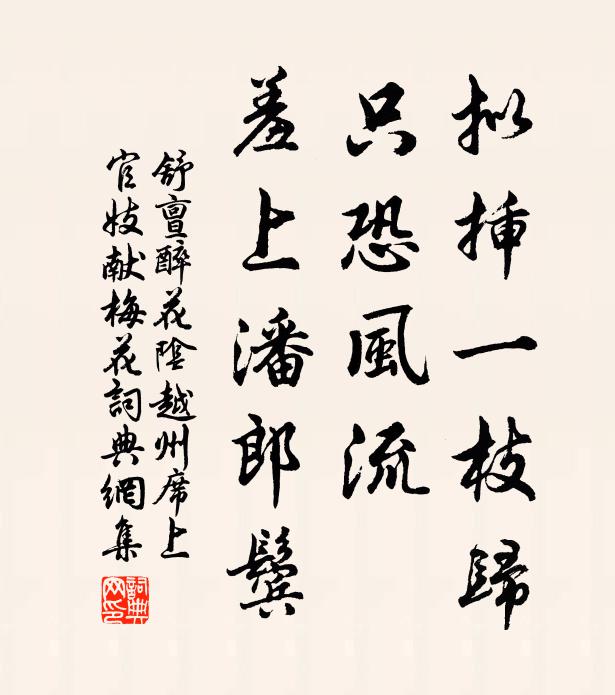 拟揷一枝歸
只恐風流
羞上潘郎鬢
舒亶醉花陰越州席上
官妓献梅花詞典網集
詞典网印